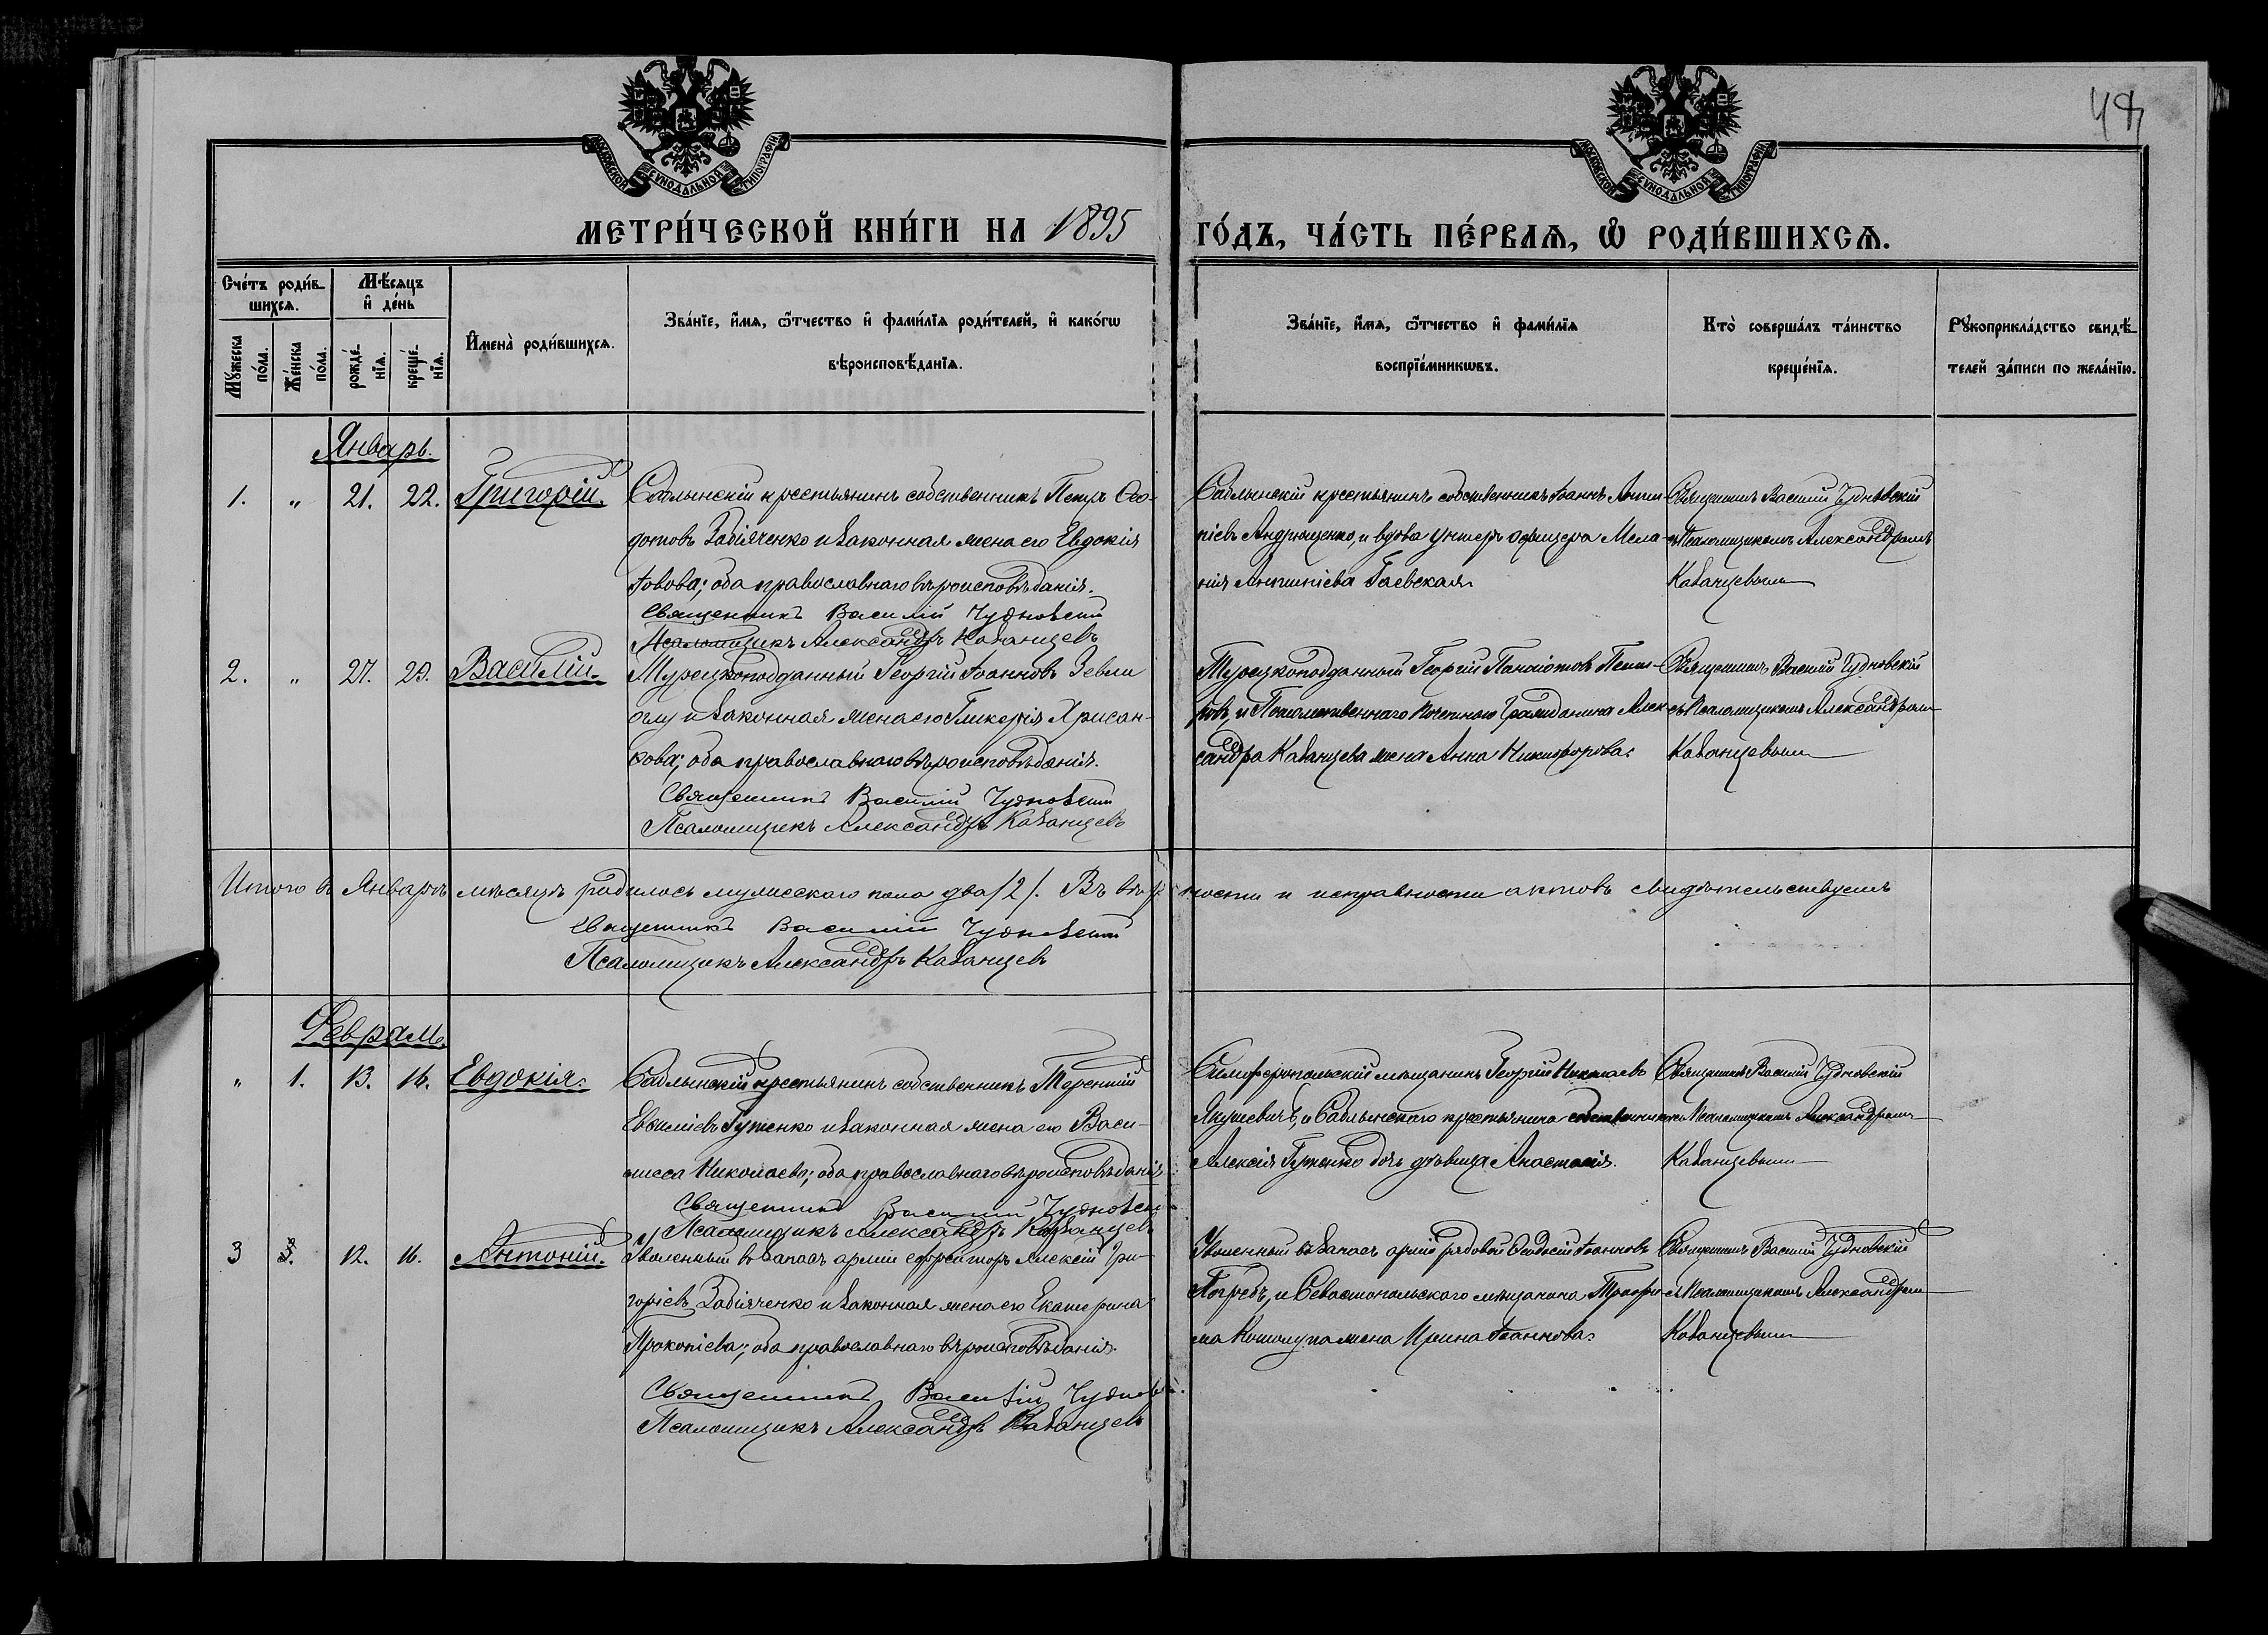 44
МОСКОВСКОЙ СѴНОДАЛЬНОЙ ТИПОГРАФІИ
МОСКОВСКОЙ СѴНОДАЛЬНОЙ ТИПОГРАФІИ
МЕТРИ́ЧЕСКОЙ КНИ́ГИ НА 1895 ГО́ДЪ, ЧА́СТЬ ПЕ́РВАѦ, Ѡ҆ РОДИ́ВШИХСѦ.
Сче́тъ роди́в-
шихсѧ.
Мꙋ́жеска
по́ла.
Же́нска
по́ла.
Мѣ́сѧцъ
и҆ де́нь
рожде́-
нїѧ.
креще́-
нїѧ.
И҆мена̀ роди́вшихсѧ.
Зва́нїе, и҆́мѧ, ѻ҆́тчество и҆ фами́лїѧ роди́телей, и҆ како́гѡ
вѣроисповѣ́данїѧ.
Зва́нїе, и҆́мѧ, ѻ҆́тчество и҆ фами́лїѧ
воспрїе́мникѡвъ.
Кто̀ соверша́лъ та́инство
креще́нїѧ.
Рꙋкоприкла́дство свидѣ́-
телей за́писи по жела́нїю.
Январь.
1. „ 21. 22. Григорій.
Саблынскій крестьянинъ собственникъ Петръ Ѳео-
дотовъ Забіяченко и законная жена его Евдокія
Іовова; оба православнаго вѣроисповѣданія.
Священникъ Василій Чудновскій
Псаломщикъ Александръ Казанцевъ
Саблынскій крестьянинъ собственникъ Іоаннъ Анти-
піевъ Андрющенко, и вдова унтеръ офицера Мела-
нія Антипіева Гаевская
Священникъ Василій Чудновскій
съ Псаломщикомъ Александромъ
Казанцевымъ
2. „ 27. 29. Василій.
Турецкоподданный Георгій Іоанновъ Зевли
оглу и законная жена его Гликерія Хрисан-
ѳова; оба православнаго вѣроисповѣданія.
Священникъ Василій Чудновскій
Псаломщикъ Александръ Казанцевъ
Турецкоподданный Георгій Панаіотовъ
и Потомственнаго Почетнаго Гражданина Алек-
сандра Казанцева жена Анна Никифорова.
Священникъ Василій Чудновскій
съ Псаломщикомъ Александромъ
Казанцевымъ
Итого въ Январѣ мѣсяцѣ родилось мужескаго пола два /2/. Въ вѣрности и исправности актовъ свидѣтельствуемъ
Священникъ Василій Чудновскій
Псаломщикъ Александръ Казанцевъ
Февраль.
„ 1. 13. 16. Евдокія.
Саблынскій крестьянинъ собственникъ Терентій
Евѳиміевъ Гуженко и законная жена его Васи-
лисса Николаева; оба православнаго вѣроисповѣданія
Священникъ Василій Чудновскій
Псаломщикъ Александръ Казанцевъ
Симферопольскій мѣщанинъ Георгій Николаевъ
Янушевичъ, и Саблынскаго крестьянина собственника
Алексія Гуженко дочь дѣвица Анастасія.
Священникъ Василій Чудновскій
съ Псаломщикомъ Александромъ
Казанцевымъ
3 12. 16. Антоній.
Уволенный въ запасъ арміи ефрейторъ Алексій Гри-
горіевъ Забіяченко и законная жена его Екатерина
Прокопіева; оба православнаго вѣроисповѣданія.
Священникъ Василій Чудновскій
Псаломщикъ Александръ Казанцевъ
Уволенный въ запасъ арміи рядовой Ѳеодосій Іоанновъ
Погребъ, и Севастопольскаго мѣщанина Трофи-
ма жена Ирина Іоаннова.
Священникъ Василій Чудновскій
съ Псаломщикомъ Александромъ
Казанцевымъ